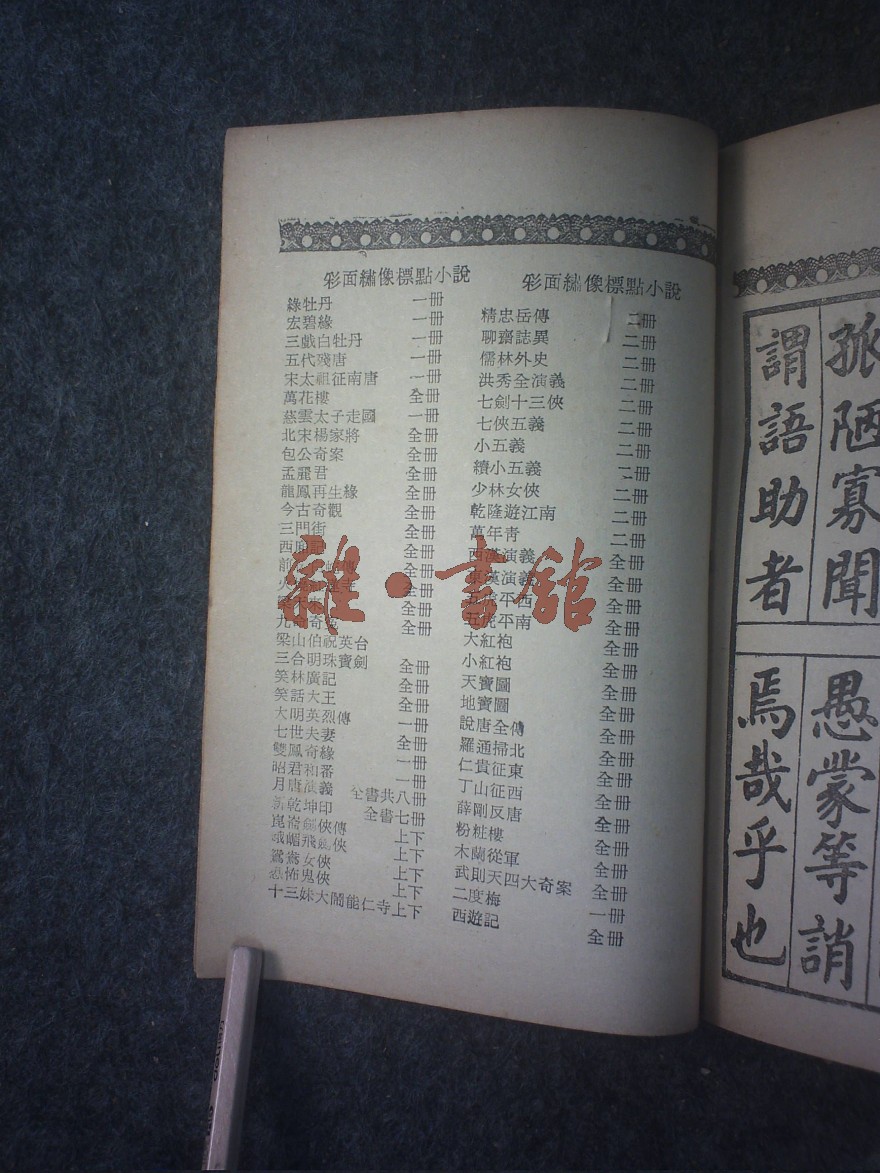 彩面繡像標點小說
綠牡丹 一冊
宏碧緣 一冊
三戲白牡丹 一冊
五代殘唐 一冊
宋太祖征南唐 一冊
萬花樓 全冊
慈雲太子走國 一冊
北宋楊家將 全冊
包公奇案 全冊
孟麗君 全冊
龍鳳再生緣 全冊
今古奇觀 全冊
三門街 全冊
西廂記 全冊
全冊
全冊
全冊
九命奇冤 全冊
梁山伯祝英台
三合明珠寶劍 全冊
笑林廣記 全冊
笑話大王 全冊
大明英烈傳 一冊
七世夫妻 全冊
雙鳳奇緣 一冊
昭君和番 一冊
月唐演義 全書共八冊
新乾坤印 全書七冊
崑崙劍俠傳 上下
峨嵋飛劍俠 上下
鴛鴦女俠 上下
恐怖鬼俠 上下
十三妹大鬧能仁寺 上下
彩面繡像標點小說
精忠岳傳 二冊
聊齋誌異 二冊
儒林外史 二冊
洪秀全演義 二冊
七劍十三俠 二冊
七俠五義 二冊
小五義 二冊
續小五義 二冊
少林女俠 二冊
乾隆遊江南 二冊
萬年青 二冊
西漢演義 全冊
東漢演義 全冊
五虎平西 全冊
五虎平南 全冊
大紅袍 全冊
小紅袍 全冊
天寶圖 全冊
地寶圖 全冊
說唐全傳 全冊
羅通掃北 全冊
仁貴征東 全冊
丁山征西 全冊
薛剛反唐 全冊
粉粧樓 全冊
木蘭從軍 全冊
武則天四大奇案 全冊
二度梅 一冊
西遊記 全冊
雜·書館
孤陋寡聞 愚蒙等誚
謂語助者 焉哉乎也